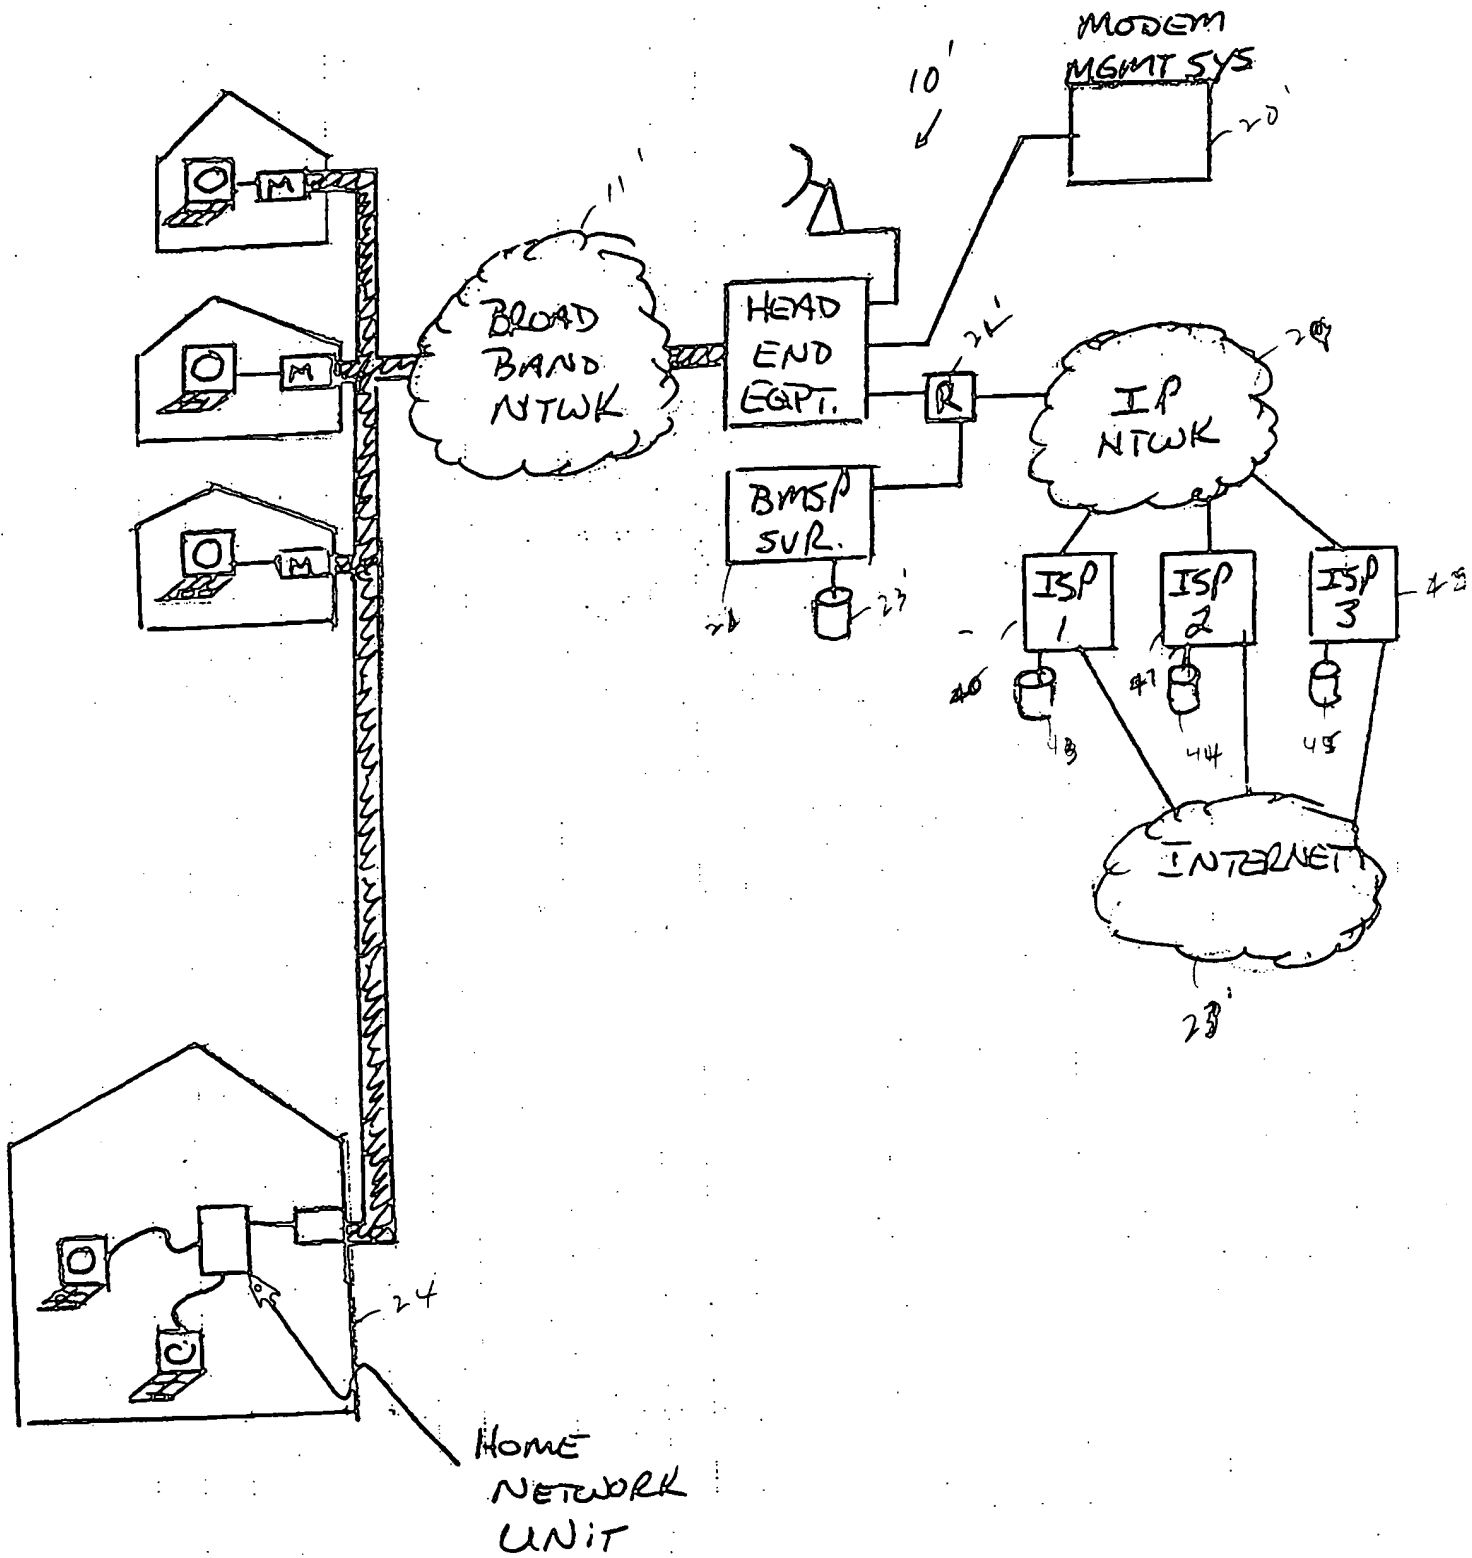 MODEM
MGMT SYS
10'
20'
11'
M
BROAD
BAND
NTWK
HEAD
END
EQPT.
R
IP
NTWK
M
BMSP
SVR.
23'
M
ISP
1
ISP
2
ISP
3
43
44
45
INTERNET
23'
24
HOME
NETWORK
UNIT